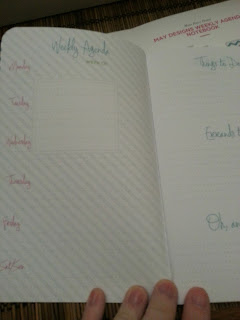 Weekly Agenda
WEEK OF
Monday
Tuesday
Wednesday
Thursday
Friday
Sat/Sun
MAY DESIGNS WEEKLY AGENDA
NOTEBOOK
Things to Do
Errands
Oh,